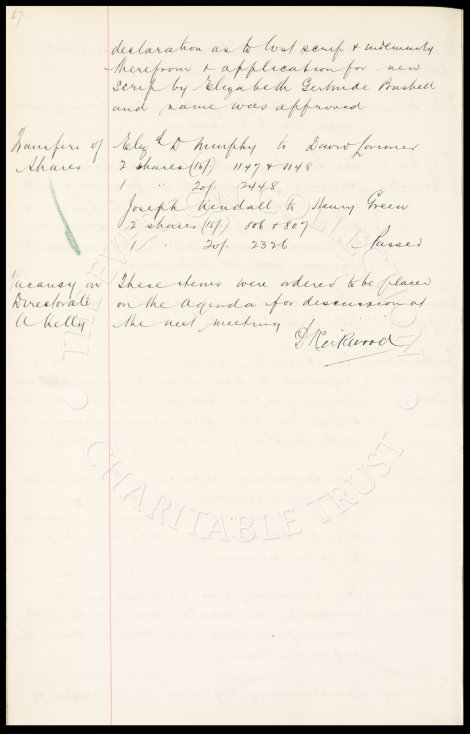 67.
declaration as to lost scrip & indemnity
therefrom & application for new
scrip by Elizabeth Gertrude Bushell
and same was approved
Transfers of Shares
Eliz.th D Murphy to David Lorimer
2 shares (16/) 1147 & 1148
1 " 20/. 2448
Joseph Kendall to Henry Green
2 shares (16/.) 806 & 807
1 " 20/. 2326 Passed
Vacancy on
Directorate
A Kelly
These items were ordered to be placed
on the Agenda for discussion at
the next meeting
D Kirkwood
THE EVERTON COLLECTION
CHARITABLE TRUST